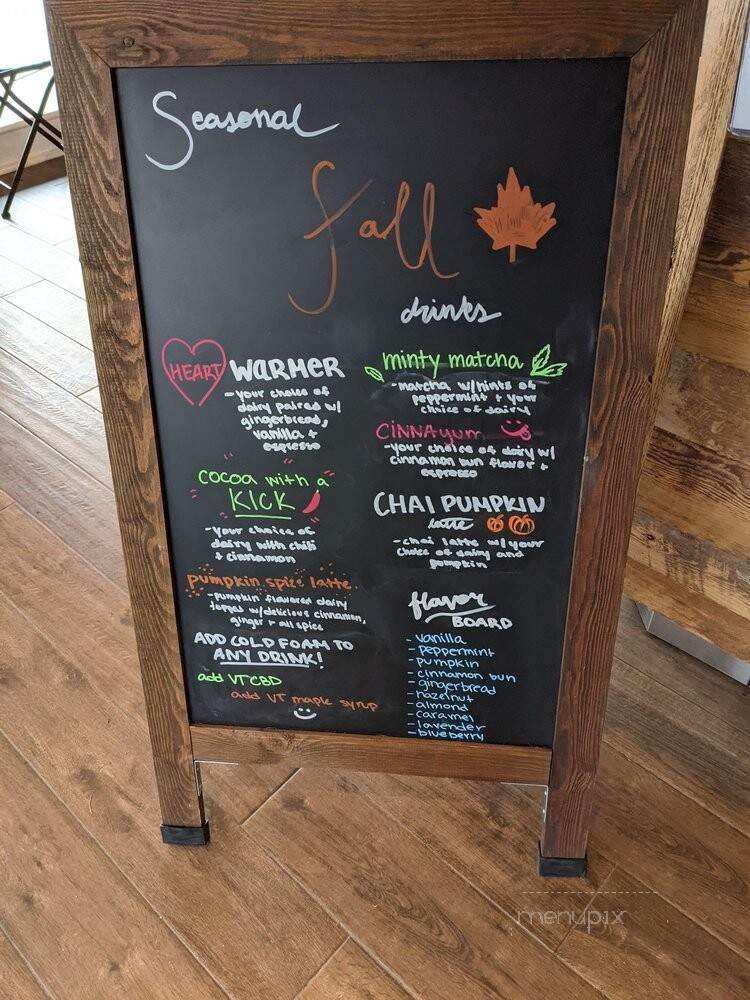 Seasonal
fall
drinks
HEART WARMER
-your choice of
dairy paired w/
gingerbread,
vanilla +
espresso
cocoa with a
KICK
-your choice of
dairy with chili
+ cinnamon
pumpkin spice latte
-pumpkin flavored dairy
topped w/delicious cinnamon,
ginger + all spice
ADD COLD FOAM TO
ANY DRINK!
add VT CBD
add VT maple syrup
minty matcha
-matcha w/hints of
peppermint + your
choice of dairy
CINNAyum
-your choice of dairy w/
cinnamon bun flavor +
espresso
CHAI PUMPKIN
latte
-chai latte w/your
choice of dairy and
pumpkin
flavor
BOARD
-vanilla
-peppermint
-pumpkin
-cinnamon bun
-gingerbread
-hazelnut
-almond
-caramel
-lavender
-blueberry
menupix